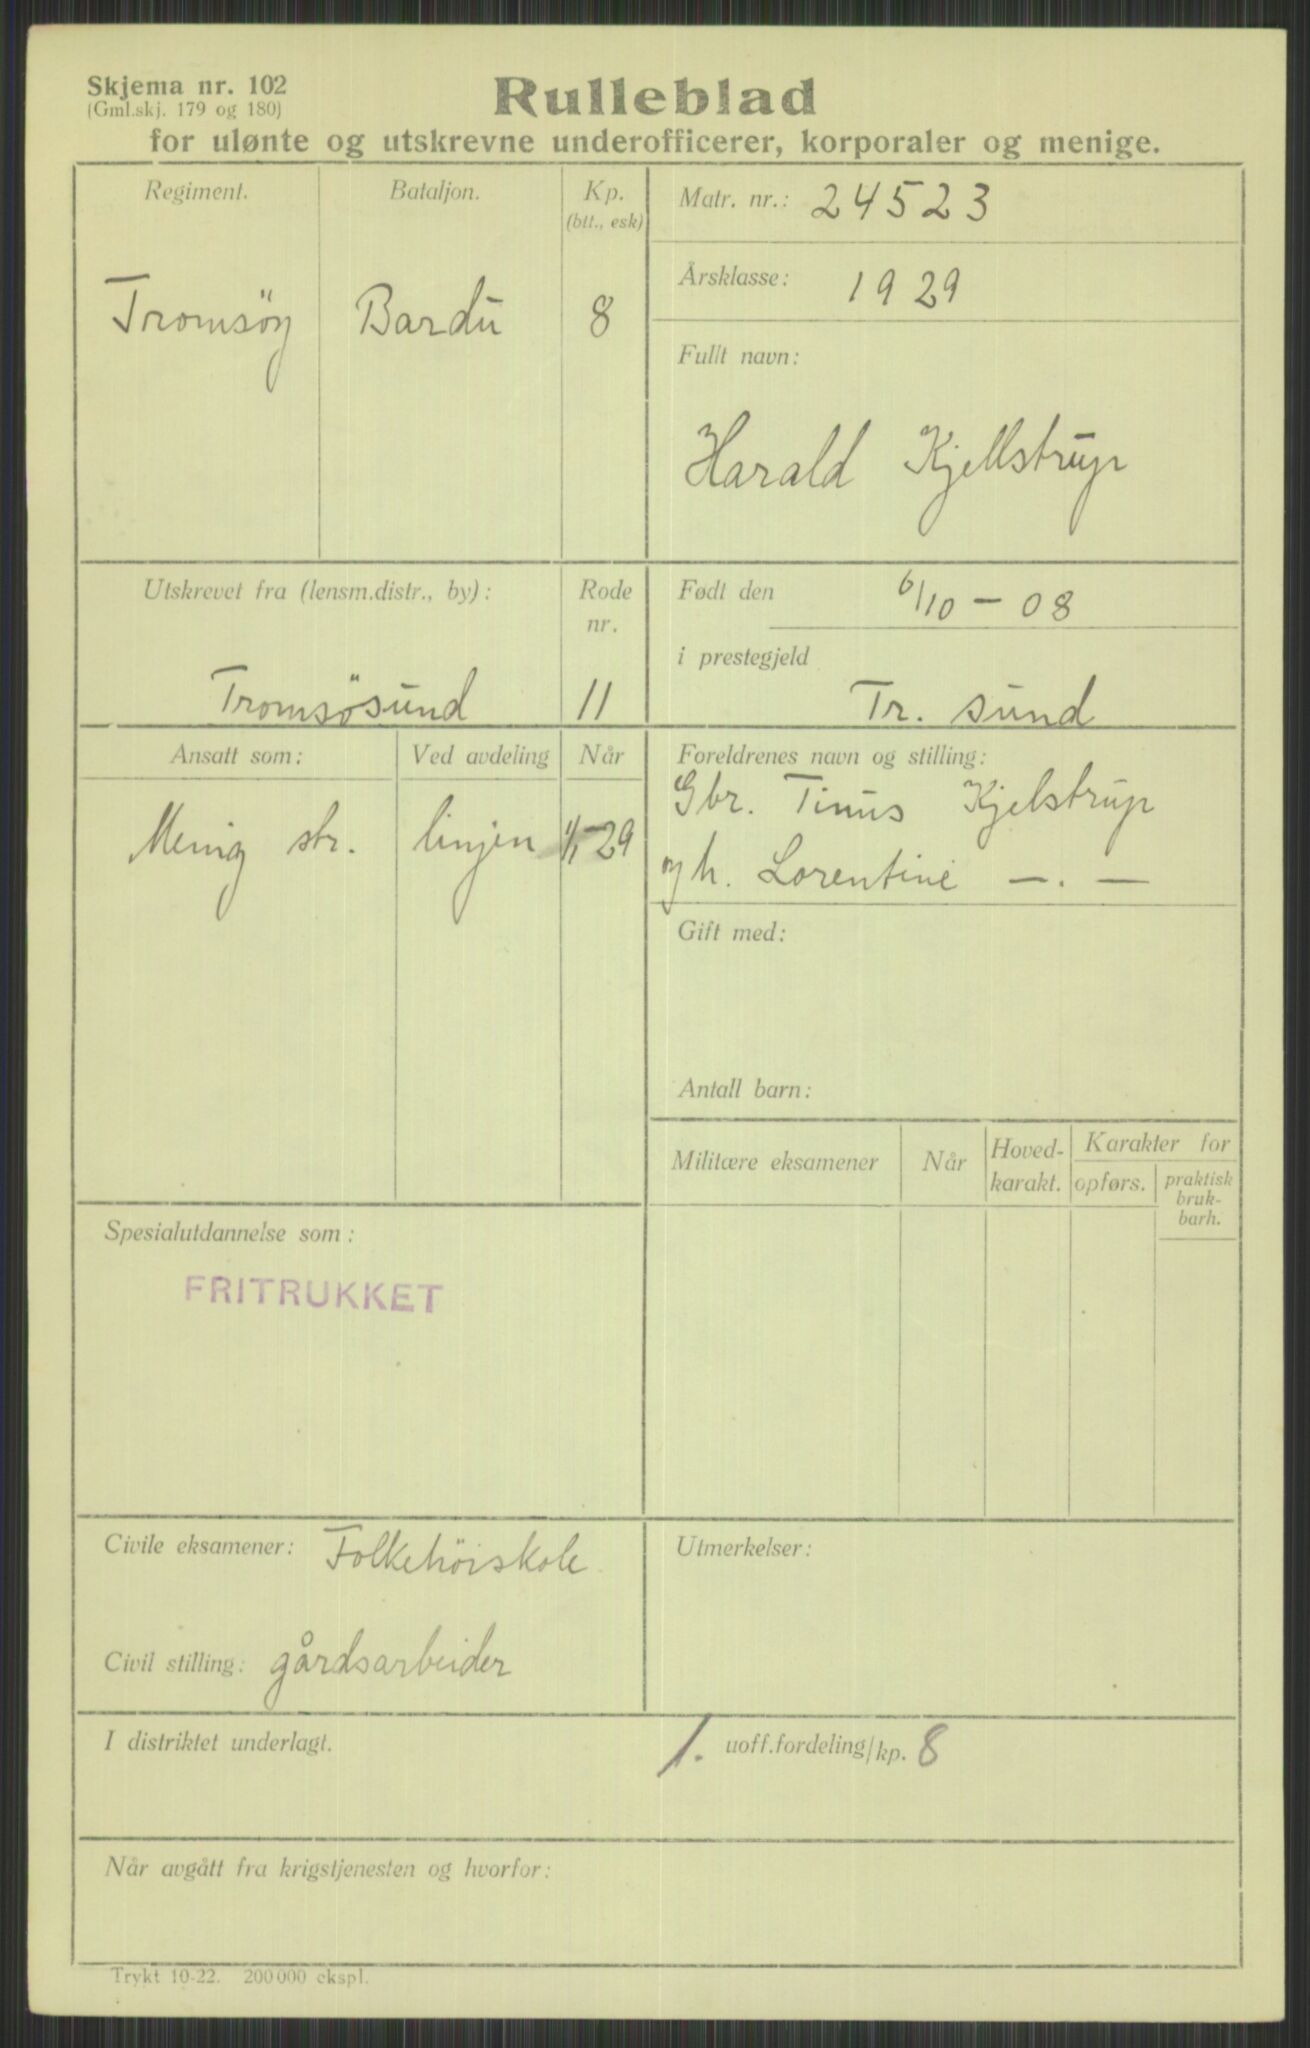 Skjema nr. 102
(Gml.skj. 179 og 180)
Rulleblad
for ulønte og utskrevne underofficerer, korporaler og menige.
Regiment.
Bataljon.
Kp.
(btt., esk)
Tromsöy
Bardu
8
Matr. nr.: 24523
Årsklasse: 1929
Fullt navn:
Harald Kjellstrup
Utskrevet fra (lensm.distr., by):
Rode
nr.
Tromsösund
11
Født den 6/10 - 08
i prestegjeld
Tr. sund
Ansatt som:
Ved avdeling
Når
Menig str.
linjen
1/1-29
Foreldrenes navn og stilling:
Gbr. Tinus Kjelstrup
og h. Lorentine —.—
Gift med:
Antall barn:
Militære eksamener
Når
Hoved-
karakt.
Karakter for
opførs.
praktisk
bruk-
barh.
Spesialutdannelse som:
FRITRUKKET
Civile eksamener: Folkehöiskole
Civil stilling: gårdsarbeider
Utmerkelser:
I distriktet underlagt.
1. uoff.fordeling/kp. 8
Når avgått fra krigstjenesten og hvorfor:
Trykt 10-22. 200 000 ekspl.